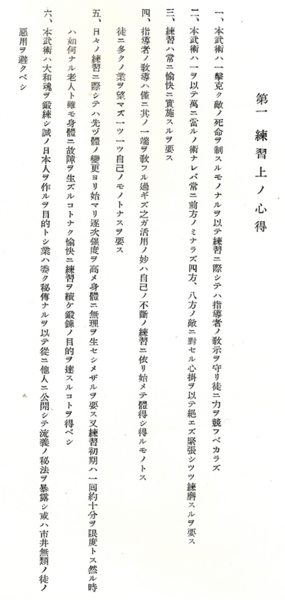 第一 練習上ノ心得
一、本武術ハ一撃克ク敵ノ死命ヲ制スルモノナルヲ以テ練習ニ際シテハ指導者ノ教示ヲ守リ徒ニ力ヲ競フベカラズ
二、本武術ハ一ヲ以テ萬ニ當ルノ術ナレバ常ニ前方ノミナラズ四方、八方ノ敵ニ對セル心掛ヲ以テ絶エズ緊張シツツ練磨スルヲ要ス
三、練習ハ常ニ愉快ニ實施スルヲ要ス
四、指導者ノ教導ハ僅ニ其ノ一端ヲ教フルニ過ギズ之ガ活用ノ妙ハ自己ノ不斷ノ練習ニ依リ始メテ體得シ得ルモノトス
徒ニ多クノ業ヲ望マズ一ツ一ツ自己ノモノトナスヲ要ス
五、日々ノ練習ニ際シテハ先ヅ體ノ變更ヨリ始マリ逐次强度ヲ高メ身體ニ無理ヲ生セシメザルヲ要ス又練習初期ハ一回約十分ヲ限度トス然ル時
ハ如何ナル老人ト雖モ身體ニ故障ヲ生ズルコトナク愉快ニ練習ヲ續ケ鍛錬ノ目的ヲ達スルコトヲ得ベシ
六、本武術ハ大和魂ヲ鍛錬シ誠ノ日本人ヲ作ルヲ目的トシ業ハ悉ク秘傳ナルヲ以テ徒ニ他人ニ公開シテ流義ノ秘法ヲ暴露シ或ハ市井無頼ノ徒ノ
惡用ヲ避クベシ